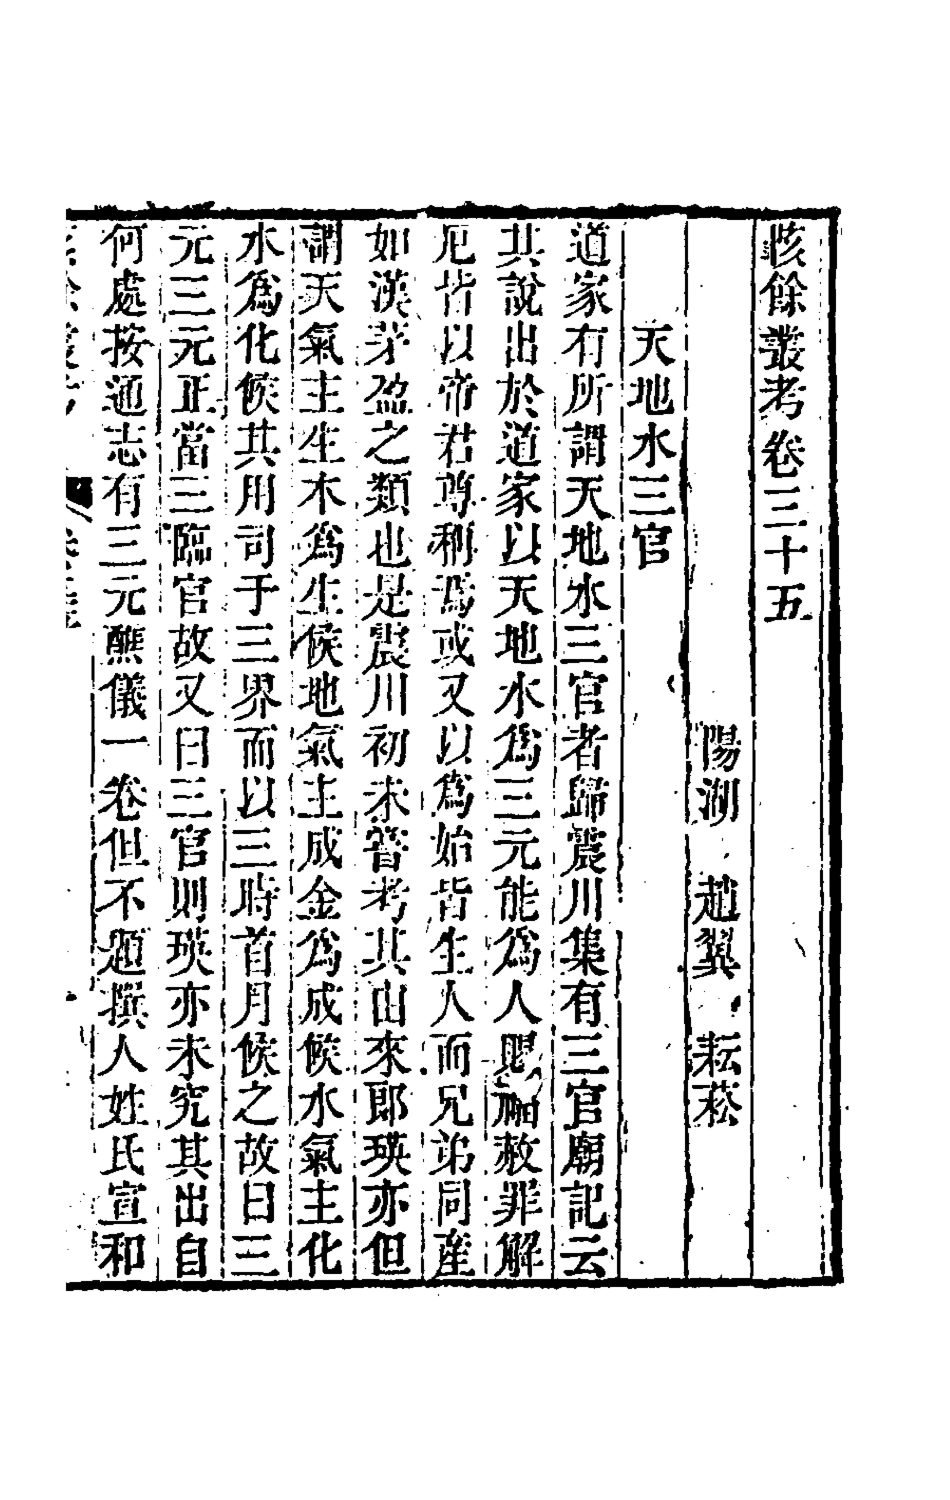 陔餘叢考卷三十五
陽湖 趙翼 耘菘
天地水三官
道家有所謂天地水三官者歸震川集有三官廟記云
其說出於道家以天地水為三元能為人賜福赦罪解
厄皆以帝君尊稱焉或又以為始皆生人而兄弟同產
如漢茅盈之類也是震川初未嘗考其由來郎瑛亦但
謂天氣主生木為生候地氣主成金為成候水氣主化
水為化候其用司于三界而以三時首月候之故曰三
元三元正當三臨官故又曰三官則瑛亦未究其出自
何處按通志有三元醮儀一卷但不題撰人姓氏宣和